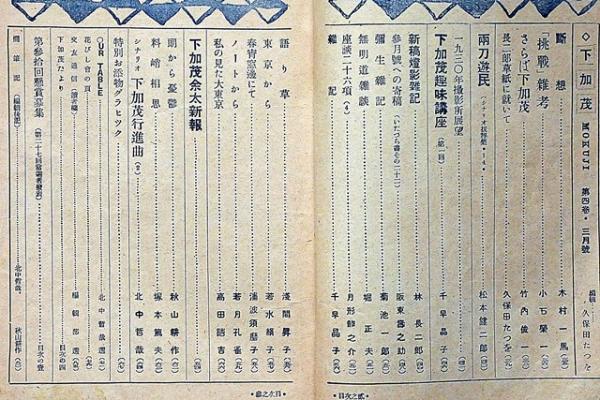 ◇下加茂 MOKUJI 第四卷・三月號
編輯 久保田たつを
斷想 木村一馬
「挑戰」雜考 小石榮一
さらば下加茂 竹內俊一
長二郎草紙に就いて 久保田たつを
兩刀遊民 松本健二郎
一九三〇年撮影所展望
下加茂趣味講座(第一回) 千早晶子
新稿燈影雜記 林長二郎
參月號への寄稿 阪東壽之助
彌生雜記 菊池一郎
無明道雜談 堀正夫
座談二十六項 月形龍之介
雜記 千早晶子
目次之貳
語り草 淺間昇子
東京から 若水絹子
春宵窓邊にて 浦波須磨子
ノートから 若月孔雀
私の見た大東京 高田語吉
下加茂余太新報
朗から憂鬱 秋山耕作
料峭相思 塚本篤夫
シナリオ 下加茂行進曲 北中哲哉
特別お添物グラヒック
OUR TABLE 北中哲哉選
花びし會の頁
交友通信(讀者欄) 編輯部選
下加茂たより 目次の四
第參拾回懸賞募集(第二十七回當選者發表) 目次の壹
編輯後記 北中哲哉、秋山耕作
目次之參